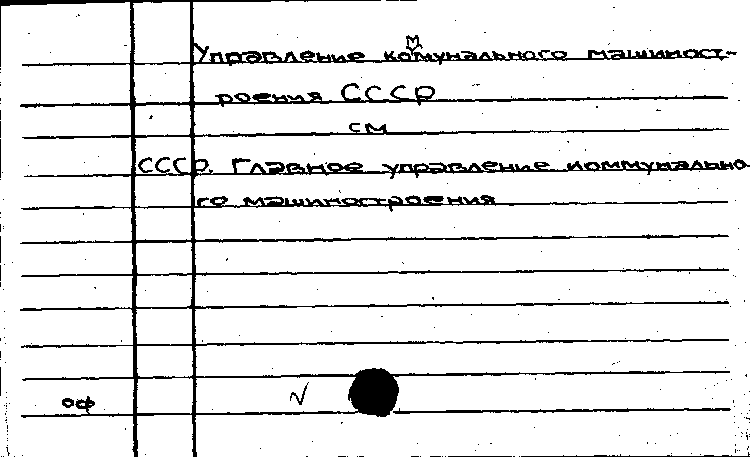 Управление коммунального машиност-
роения СССР
см
СССР. Главное управление коммунально
го машиностроения
оф